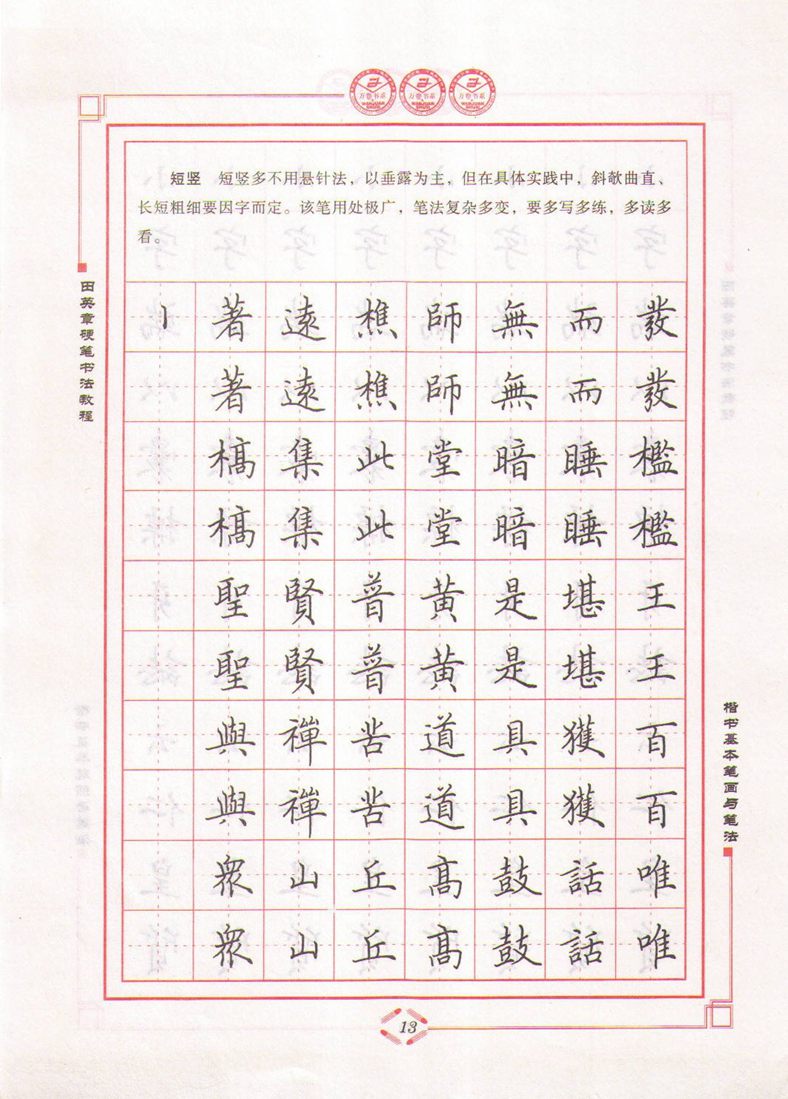 短竖 短竖多不用悬针法，以垂露为主，但在具体实践中，斜欹曲直、
长短粗细要因字而定。该笔用处极广，笔法复杂多变，要多写多练，多读多
看。
田英章硬笔书法教程
著遠樵師無而發
著遠樵師無而發
槁集此堂暗睡檻
槁集此堂暗睡檻
聖賢普黄是堪王
聖賢普黄是堪王
與禪岩道具獲百
與禪岩道具獲百
衆山丘高鼓話唯
衆山丘高鼓話唯
楷书基本笔画与笔法
13